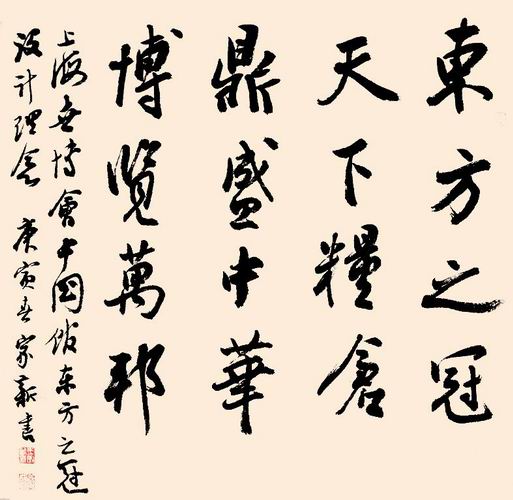 東方之冠
天下糧倉
鼎盛中華
博覽萬邦
上海世博會中國館東方之冠
設計理念 庚寅春家新書